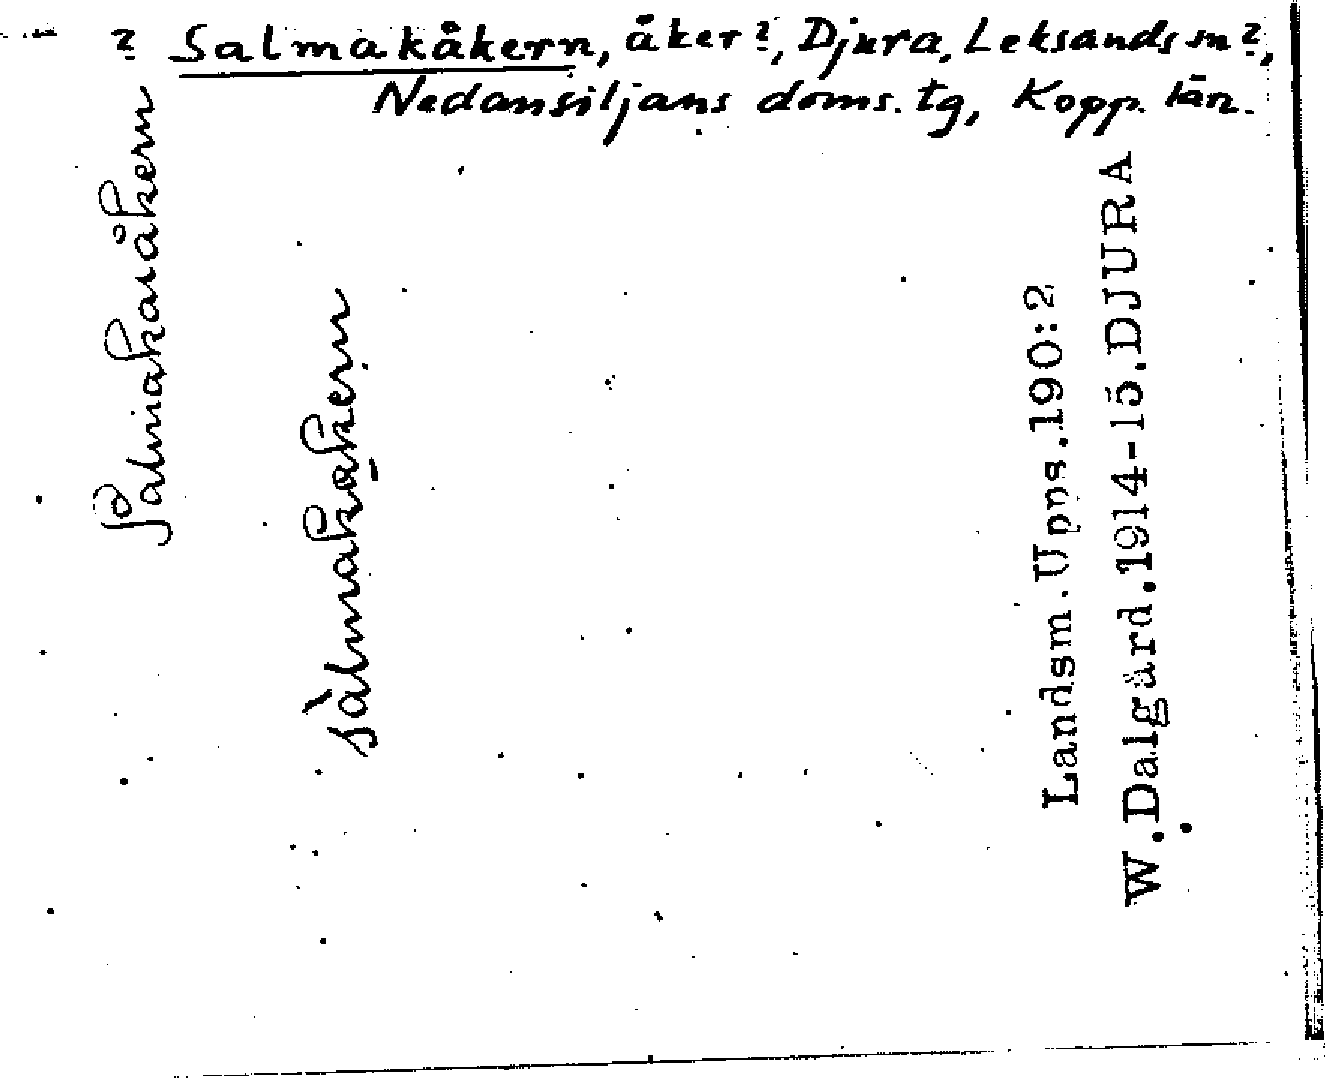 ? Salmakåkern, åker?, Djura, Leksands sn?,
Nedansiljans doms. tg, Kopp. län.
Salmakaråkern
sàlmakåkern
Landsm.Upps.190:2
W.Dalgård.1914-15.DJURA